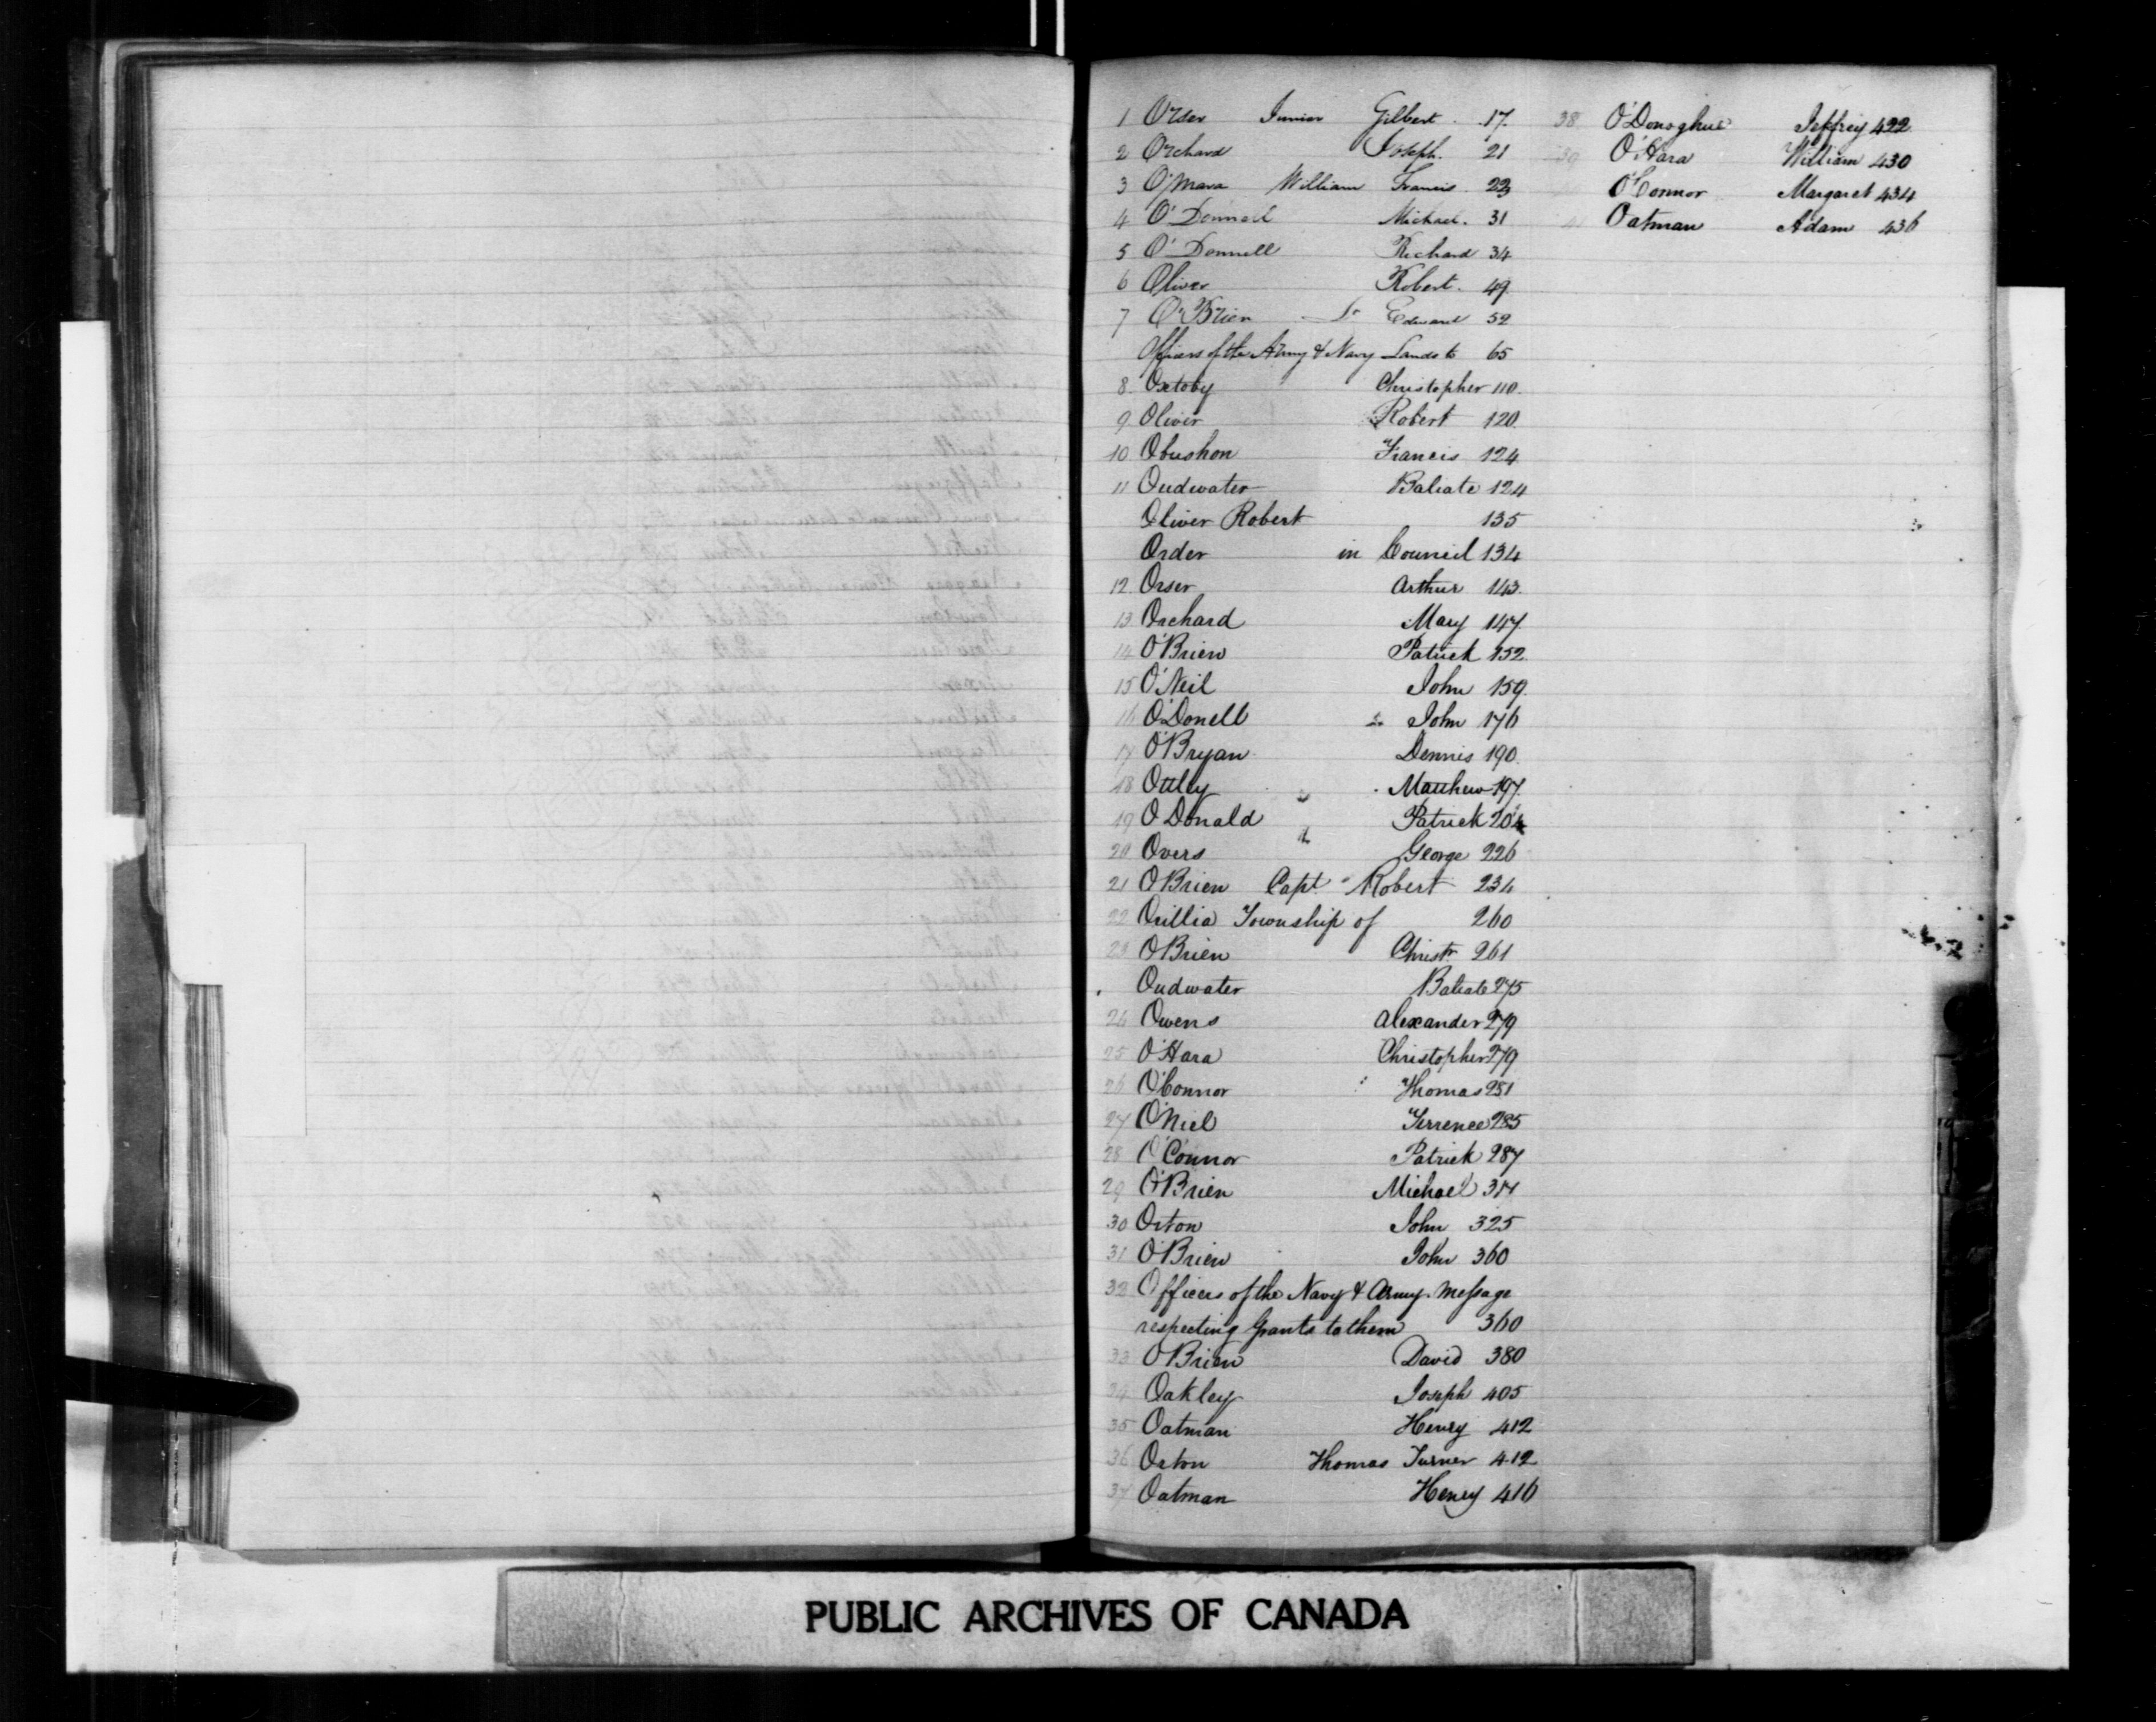 1 Orser Junior Gilbert 17
2 Orchard Joseph 21
3 O'Mara William Francis 23
4 O'Donnell Michael 31
5 O'Donnell Richard 34
6 Oliver Robert 49
7 O'Brien Edward 52
Officers of the Army & Navy Lands to 65
8 Oxtoby Christopher 110
9 Oliver Robert 120
10 Obushon Francis 124
11 Oudwater Baliate 124
Oliver Robert 135
Order in Council 134
12 Orser Arthur 143
13 Orchard Mary 147
14 O'Brien Patrick 152
15 O'Neil John 159
16 O'Donell John 176
17 O'Bryan Dennis 190
18 Ottley Matthew 197
19 O Donald Patrick 204
20 Overs George 226
21 O'Brien Capt Robert 234
22 Orillia Township of 260
23 O'Brien Christr 261
Oudwater Baliate 275
24 Owens Alexander 279
25 O'Hara Christopher 279
26 O'Connor Thomas 281
27 O'Niel Terrence 285
28 O'Connor Patrick 287
29 O'Brien Michael 314
30 Orton John 325
31 O'Brien John 360
32 Officers of the Navy & Army Message
respecting Grants to them 360
33 O'Brien David 380
34 Oakley Joseph 405
35 Oatman Henry 412
36 Orton Thomas Turner 412
37 Oatman Henry 416
38 O'Donoghue Jeffrey 422
39 O'Hara William 430
O'Connor Margaret 434
41 Oatman Adam 436
PUBLIC ARCHIVES OF CANADA